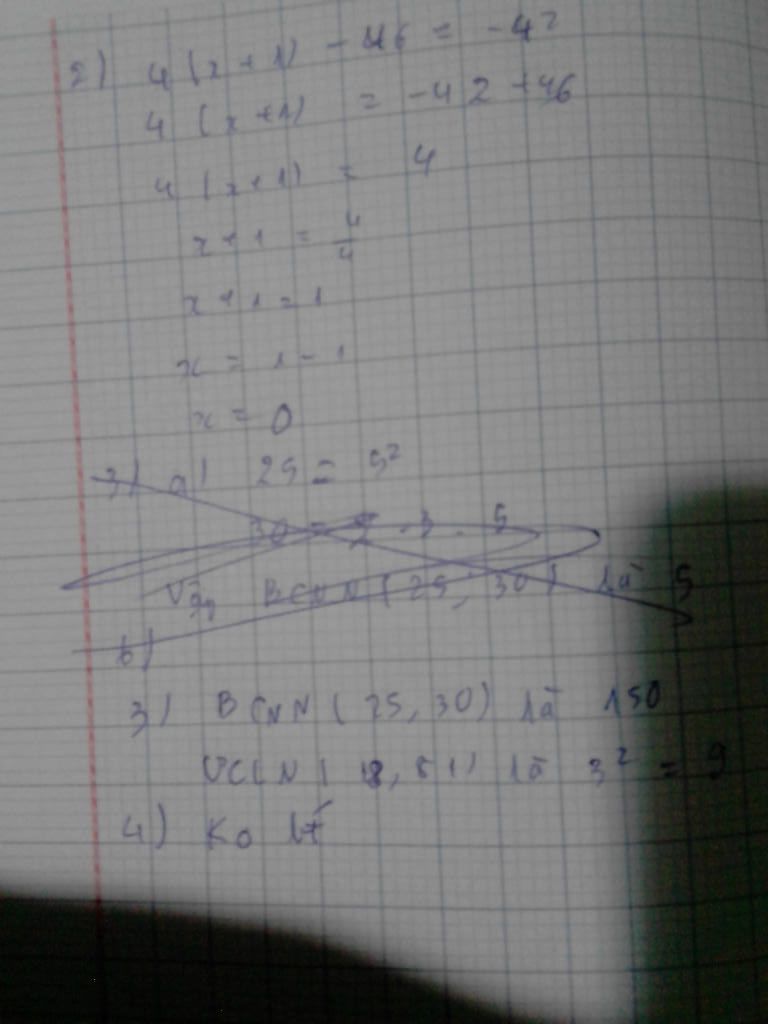 2) 4 (x + 1) - 46 = -42
4 (x + 1) = -42 + 46
4 (x + 1) = 4
x + 1 = 4/4
x + 1 = 1
x = 1 - 1
x = 0
3) a) 25 = 5²
30 = 2 . 3 . 5
Vậy BCNN (25, 30) là 5
b)
3) BCNN (25, 30) là 150
ƯCLN ( 18, 81) là 3² = 9
4) Ko